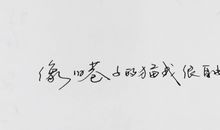 像旧巷子的猫我很自由